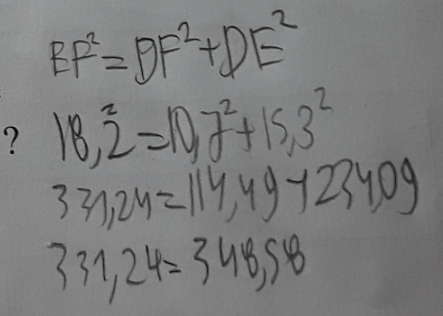 EF²=DF²+DE²
? 18,2²=10,7²+15,3²
331,24=114,49+234,09
331,24=348,58